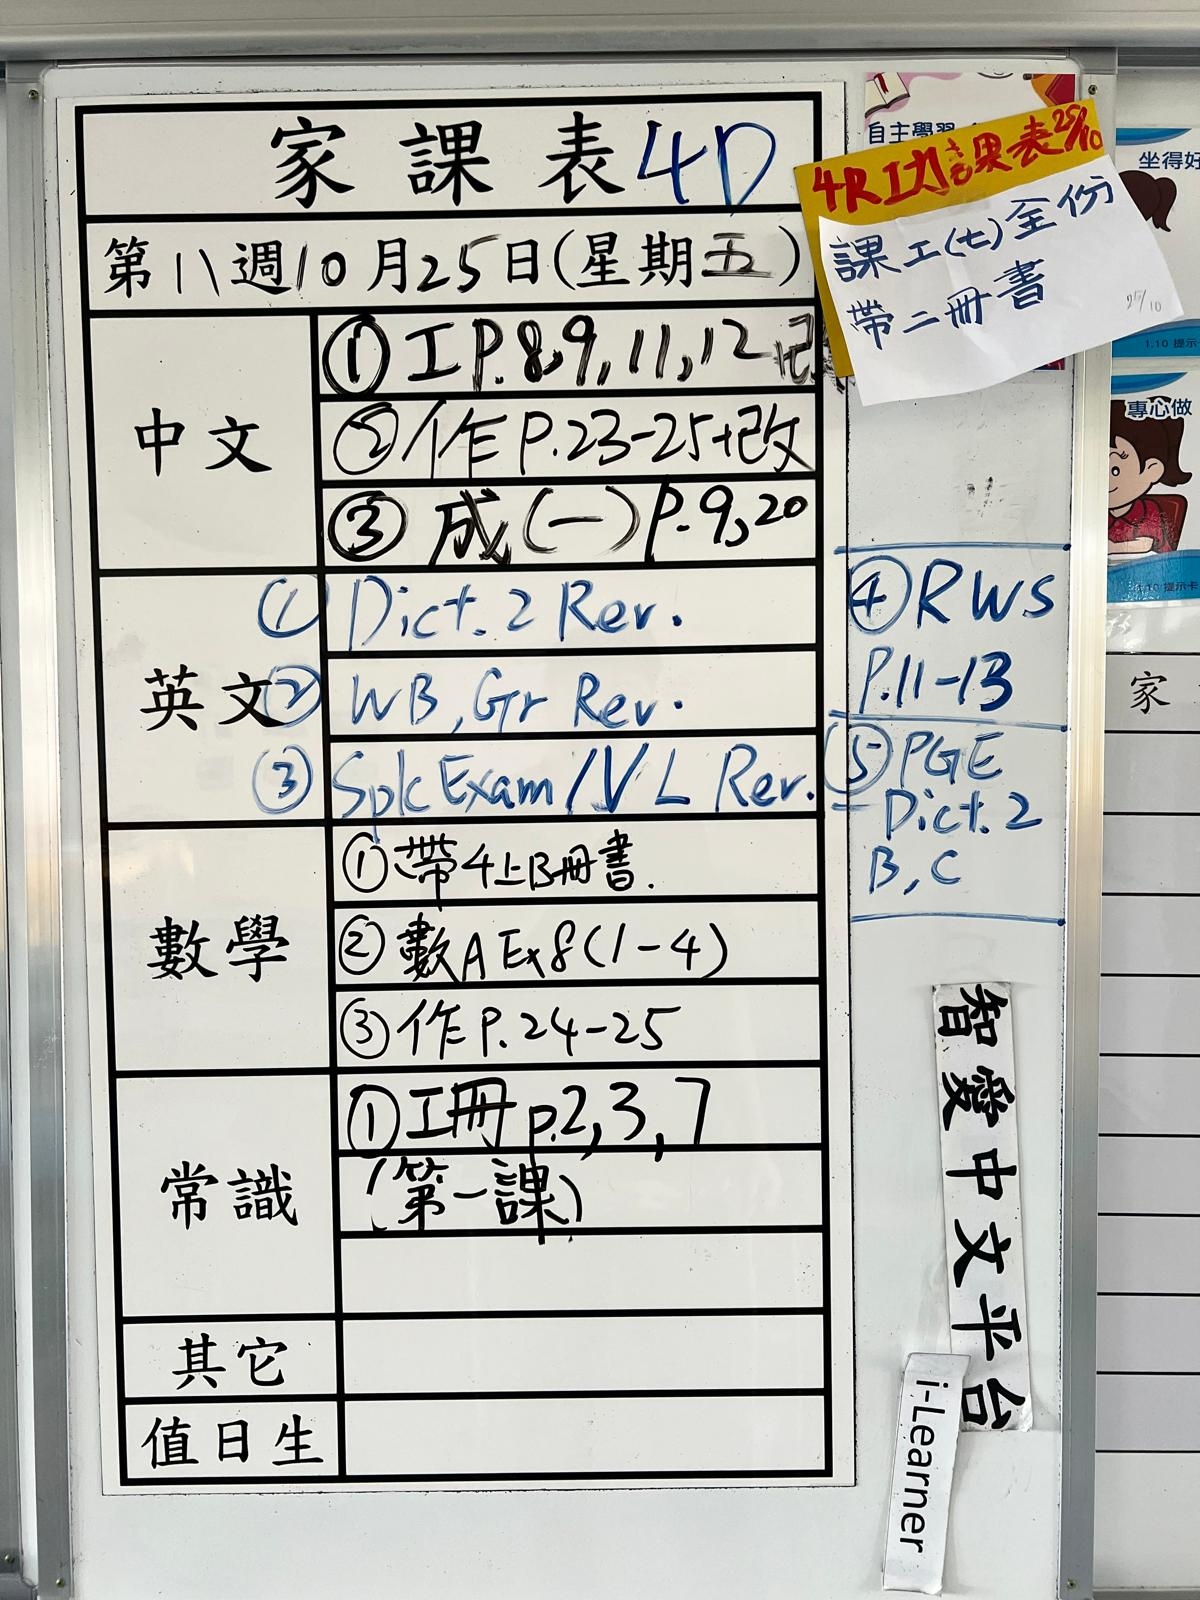 家課表4D
第八週10月25日(星期五)
中文
① 工P.8,9,11,12
② 作P.23-25+改
③ 成(一)P.9,20
英文
① Dict. 2 Rev.
② WB, Gr Rev.
③ Spk Exam / VL Rev.
④ RWS
P.11-13
⑤ PGE
Dict. 2
B, C
數學
① 帶4上B冊書.
② 數A Ex8(1-4)
③ 作P.24-25
常識
① 工冊 p.2,3,7
(第一課)
其它
值日生
自主學習
4R功課表25/10
課工(七)全份
帶二冊書
25/10
坐得好
1.10 提示卡
專心做
1.10 提示卡
家
智愛中文平台
i-Learner